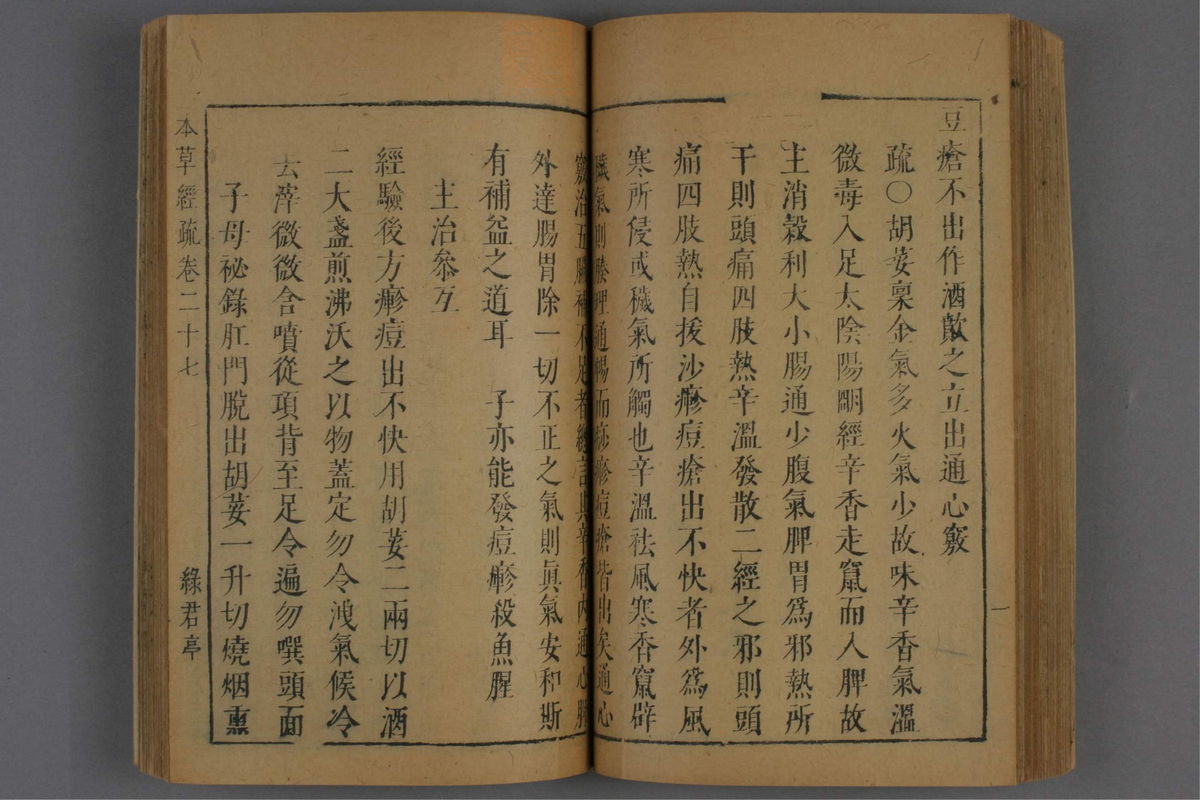 豆瘡不出作酒歕之立出通心竅
疏〇胡荽稟金氣多火氣少故味辛香氣溫
微毒入足太陰陽明經辛香走竄而入脾故
主消穀利大小腸通少腹氣脾胃爲邪熱所
干則頭痛四肢熱辛溫發散二經之邪則頭
痛四肢熱自拔沙疹痘瘡出不快者外爲風
寒所侵或穢氣所觸也辛溫祛風寒香竄辟
穢氣則腠理通暢而痧疹痘瘡皆出矣通心
竅治五臟補不足者總言其辛和內通心脾
外達腸胃除一切不正之氣則眞氣安和斯
有補益之道耳　子亦能發痘疹殺魚腥
主治參互
經驗後方疹痘出不快用胡荽二兩切以酒
二大盞煎沸沃之以物蓋定勿令洩氣候冷
去滓微微含噴從項背至足令遍勿噀頭面
子母祕錄肛門脫出胡荽一升切燒烟熏
本草經疏卷二十七
綠君亭